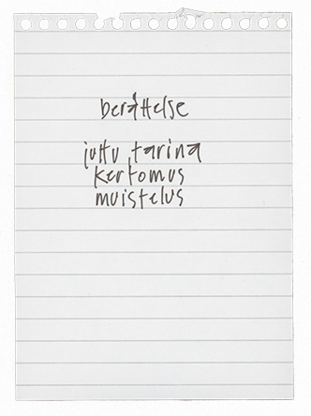 berättelse
juttu, tarina
kertomus
muistelus